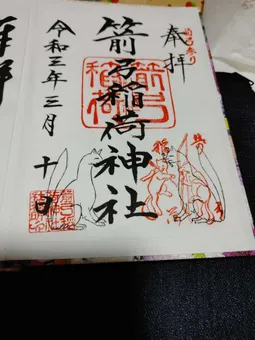 奉拝
箭弓稲荷神社
箭弓
稲荷
令和三年三月十日